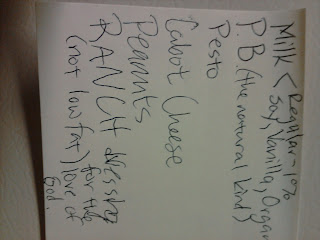 Milk < Regular - 1%
Soy, Vanilla, Organ
P.B. (the natural kind)
Pesto
Cabot Cheese
Peanuts
RANCH dressing
(not low fat) for the
love of
God.